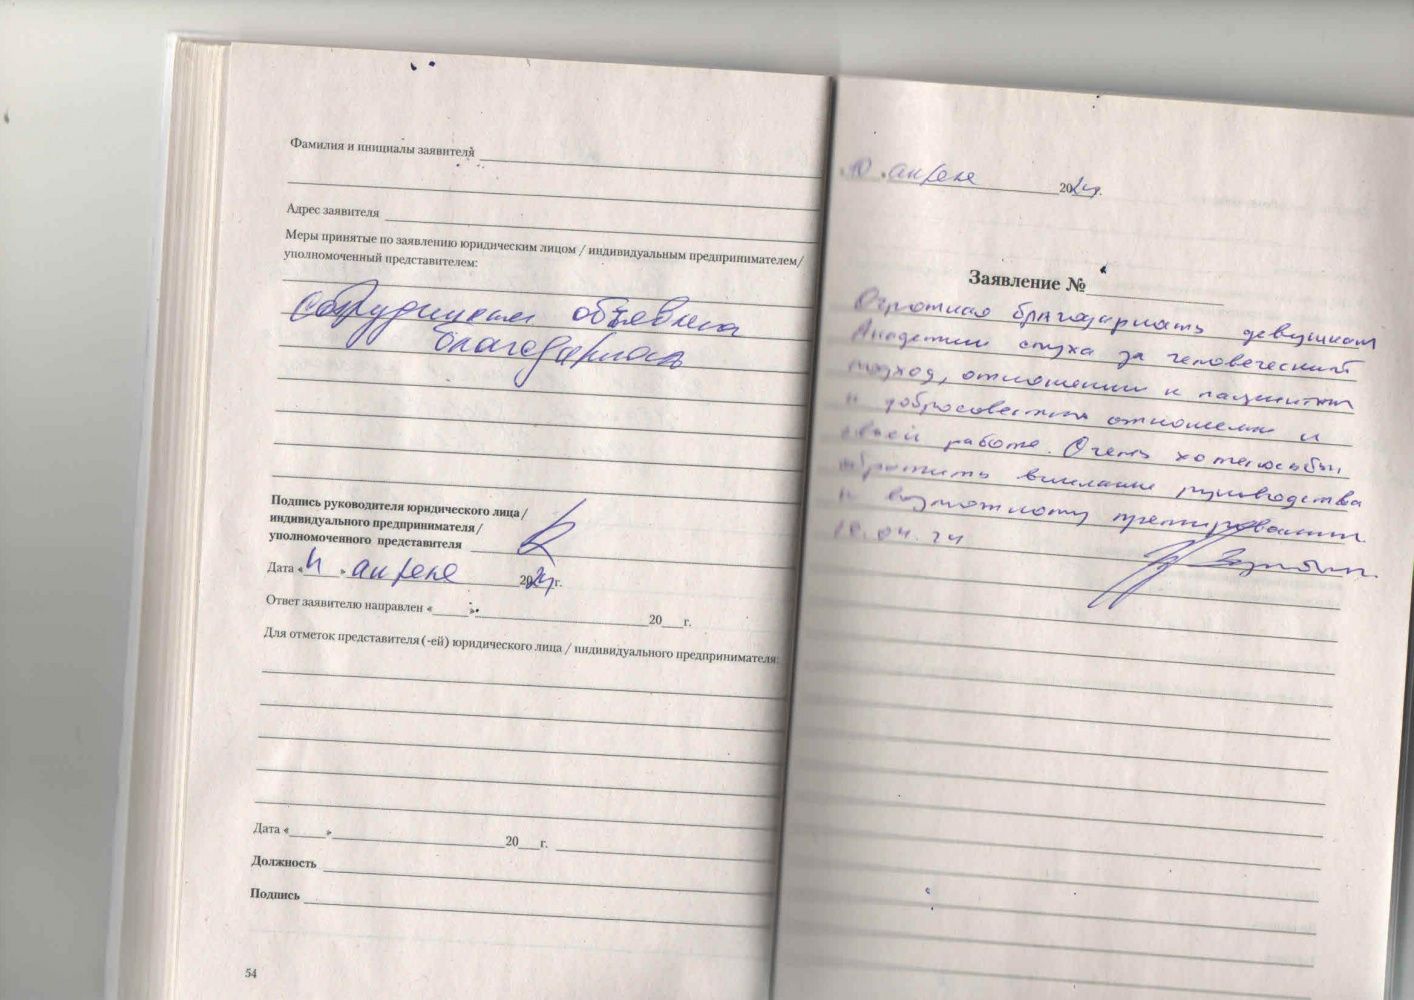 Фамилия и инициалы заявителя
Адрес заявителя
Меры принятые по заявлению юридическим лицом / индивидуальным предпринимателем/
уполномоченный представителем:
Сотрудницам объявлена
благодарность
Подпись руководителя юридического лица /
индивидуального предпринимателя /
уполномоченного представителя
Дата «11» апреля 2024г.
Ответ заявителю направлен «    »            20    г.
Для отметок представителя (-ей) юридического лица / индивидуального предпринимателя:
Дата «    »            20    г.
Должность
Подпись
54
10 апреля 2024г.
Заявление №
Огромная благодарность девушкам
Академии слуха за человеческий
подход, отношении к пациентам
и добросовестном отношении к
своей работе. Очень хотелось бы
обратить внимание руководства
к возможному премированию.
10.04.24